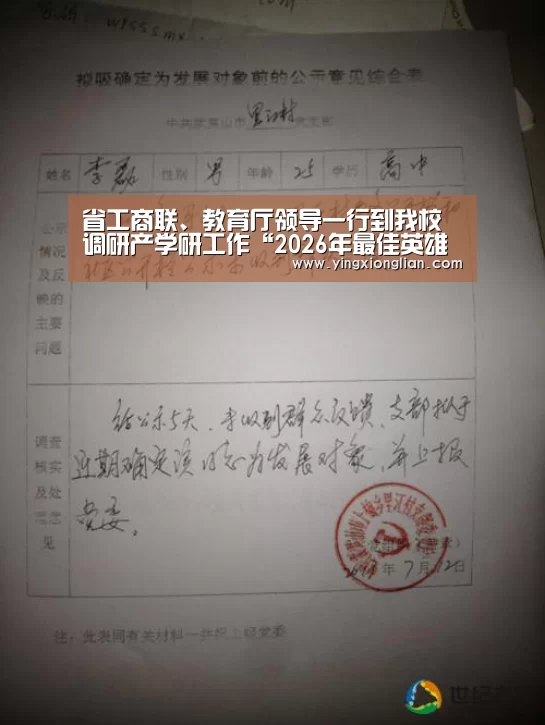 拟吸确定为发展对象前的公示意见综合表
姓名 李磊 性别 男 年龄 25 学历 高中
省工商联、教育厅领导一行到我校
调研产学研工作“2026年最佳英雄
www.yingxionglian.com
公示
情况
及反
映的
主要
问题
经公示5天，未收到群众反馈，支部拟于
近期确定该同志为发展对象，并上报
党委。
调查
核实
及处
见
年7月12日
注：此表同有关材料一并报上级党委